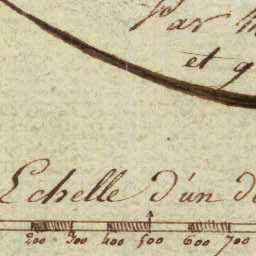 Par
et
Echelle d'un
200 300 400 500 600 700